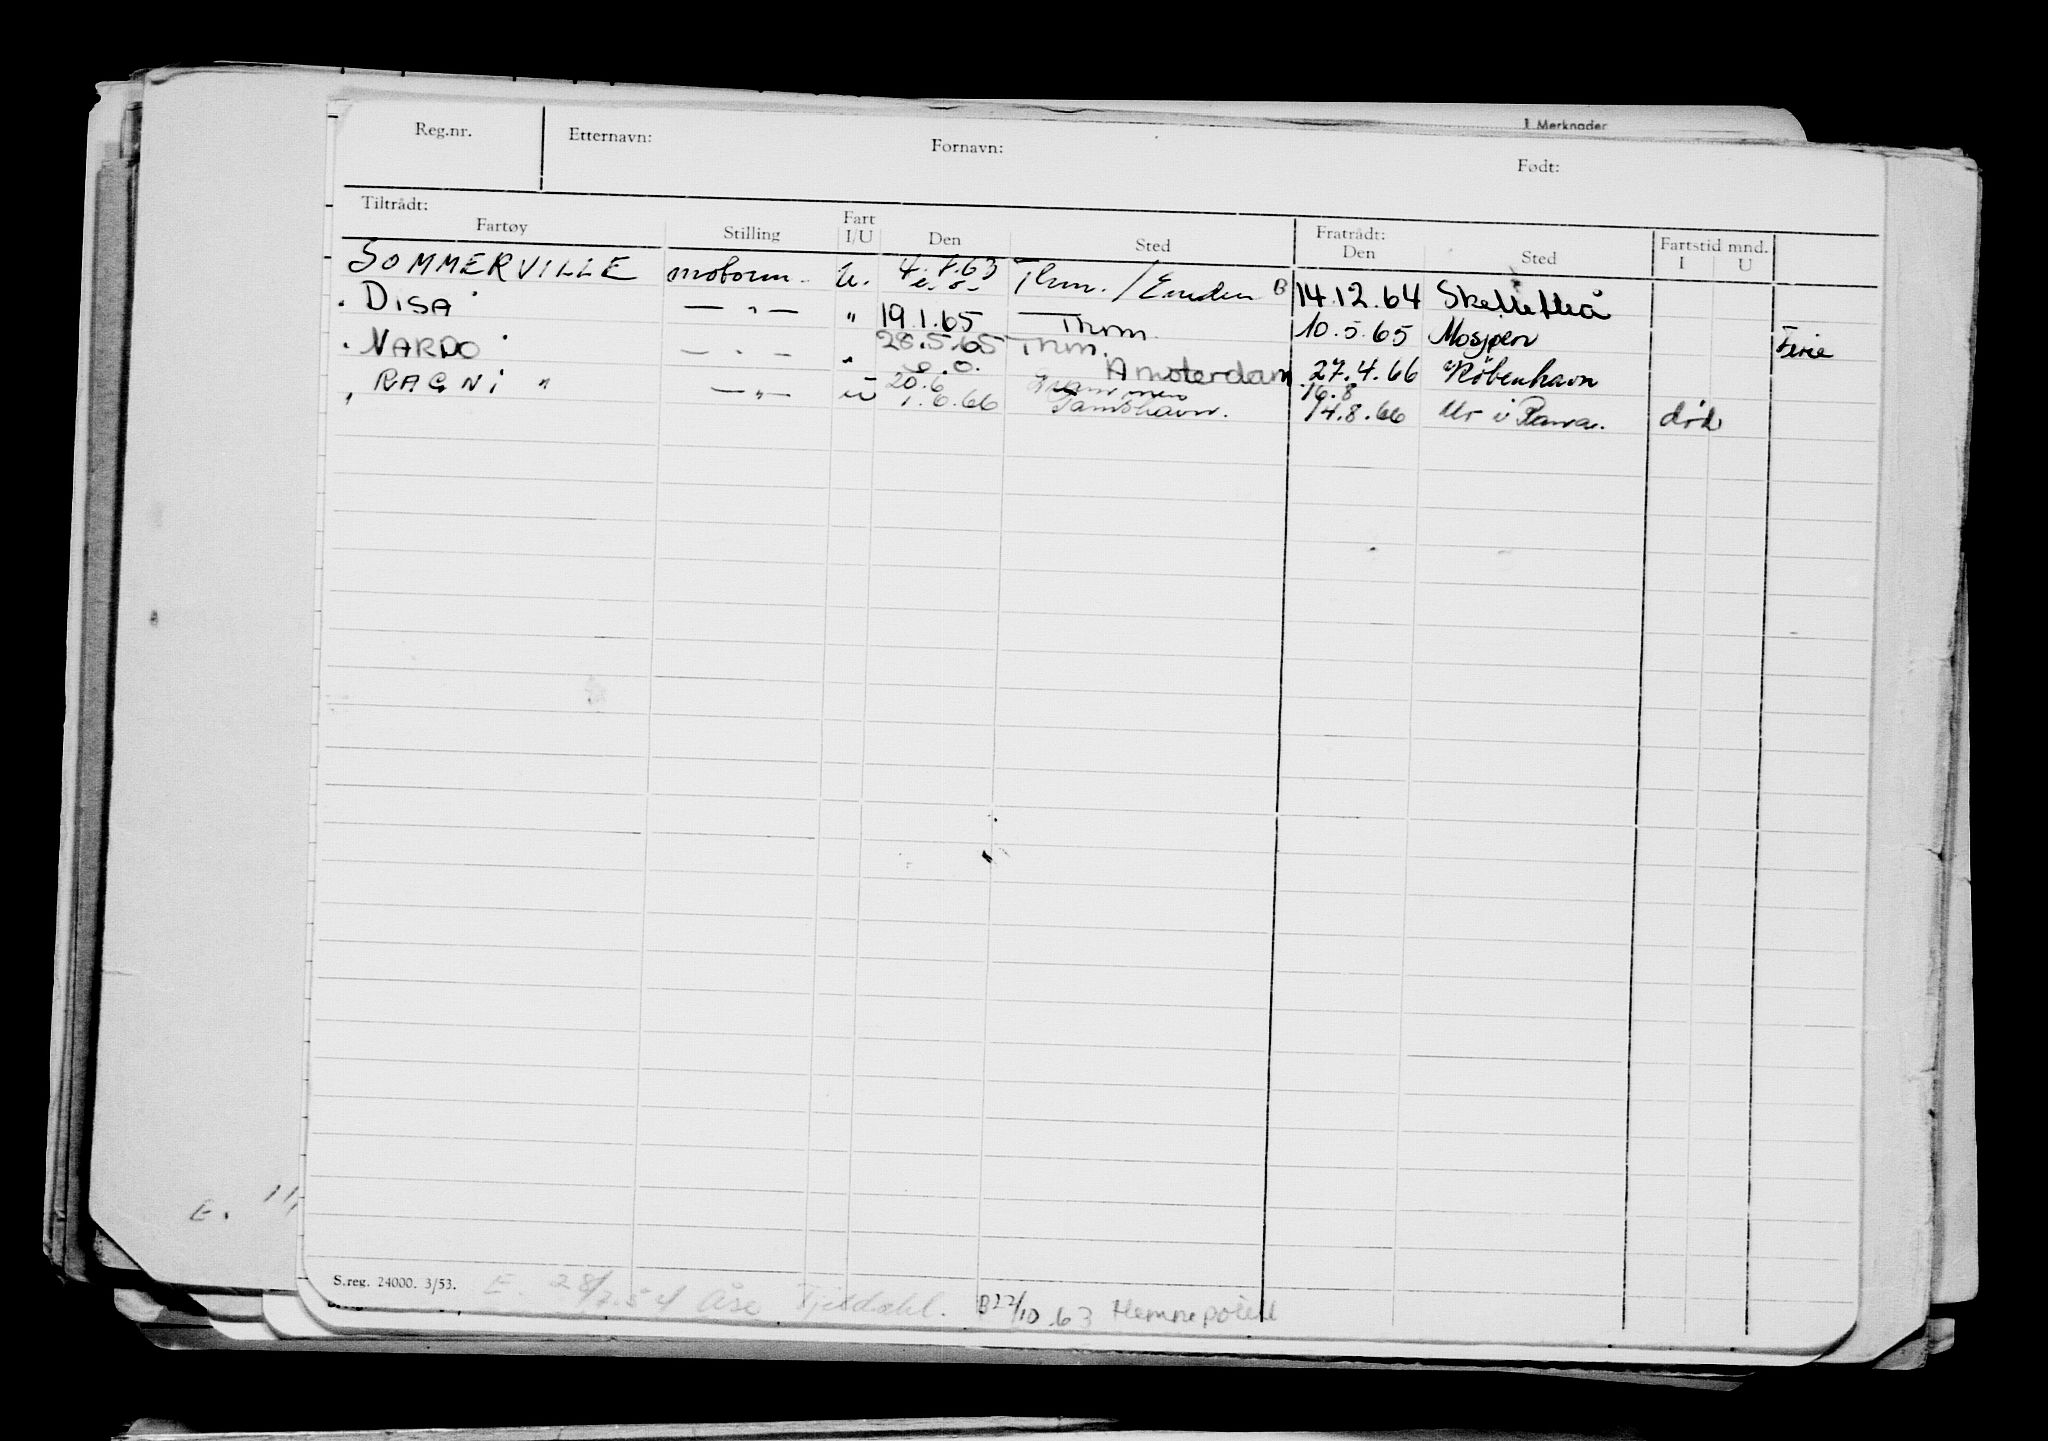 1 Merknader
Reg.nr. Etternavn: Fornavn: Født:
Tiltrådt: Fratrådt: Fartstid mnd.
Fartøy Stilling Fart I/U Den Sted Den Sted I U
SOMMERVILLE motorm. U. 4.1.63 Thm. / Emden B 14.12.64 Skellefteå
" DISA " — " — " 19.1.65 Thrm. 10.5.65 Mosjøen Ferie
" VARDO " — " — " 28.5.65 Thrm. Amsterdam 27.4.66 København
" RAGNI " — " — U 20.6 16.8
1.6.66 Tamshavn. 14.8.66 Mo i Rana. død
E. 11,
S.reg. 24000. 3/53. E. 28/7.54 Åse Tjeldahl. B 22/10.63 Hemnepoll